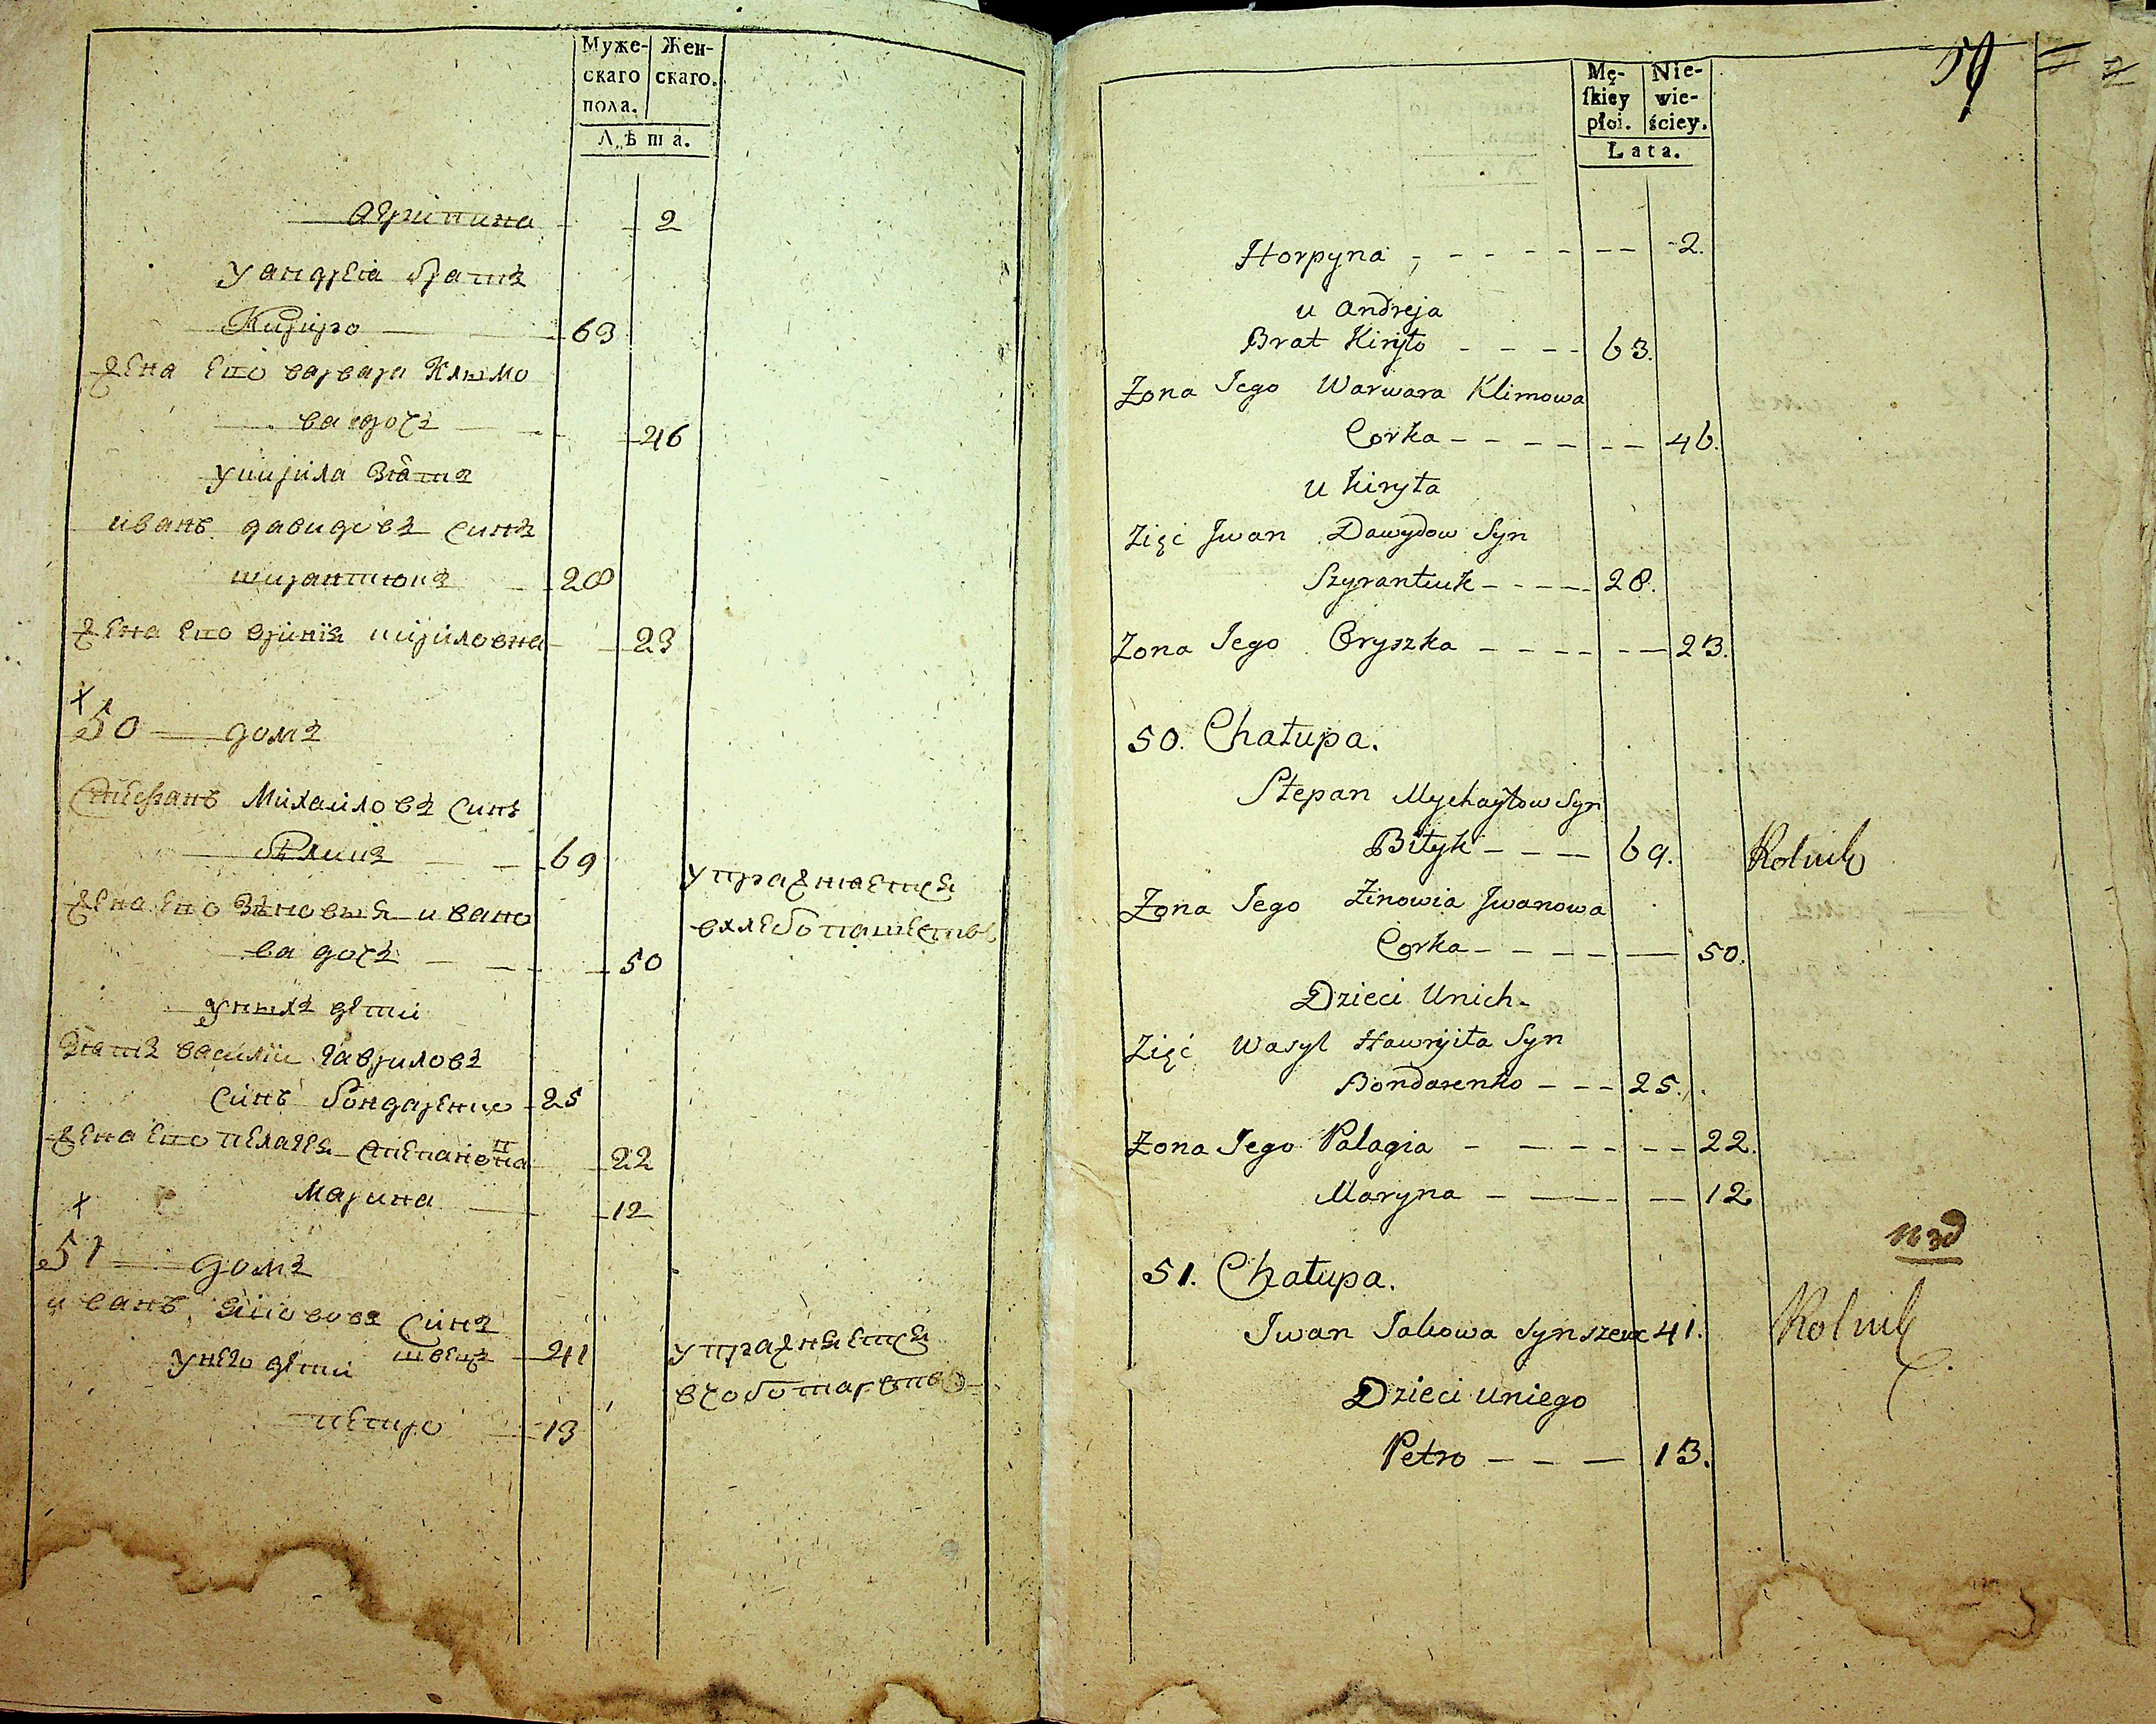 Муже- Жен-
скаго скаго.
пола.
Лѣта.
Агрипина 2
у андрея братъ
Кирило 63
жена его варвара Клымо
ва дочъ 46
у кирила зять
иванъ давидовъ синъ
ширантюкъ 28
жена его кирилована 23
50 домъ
Стефанъ Михайловъ синъ
биликъ 69
упражняется
жена его Зѣновыя ивано
в хлебопашестве
ва дочъ 50
у ныхъ дети
Зять василии гавриловъ
синъ бондаренко 25
жена его пелагея 22
Марина 12
51 домъ
иванъ якововъ синъ
швецъ 41
упражняется
у него дети
в чоботарстве
петро 13
Mę- Nie-
ſkiey wie-
płci. ściey.
Lata.
Horpyna 2.
u Andreja
Brat Kiryło 63.
Żona Jego Warwara Klimowa
Corka 46.
u Kiryła
Zięć Jwan Dawydow Syn
Szyrantiuk 28.
Żona Jego Oryszka 23.
50. Chałupa.
Stepan Mychayłow Syn
Biłyk 69. Rolnik
Żona Jego Zinowia Jwanowa
Corka 50.
Dzieci Unich
Zięć Wasyl Hawryiła Syn
Bondarenko 25.
Żona Jego Palagia 22.
Maryna 12
51. Chałupa.
Jwan Jakowa Syn szewc 41. Rolnik
Dzieci uniego
Petro 13.